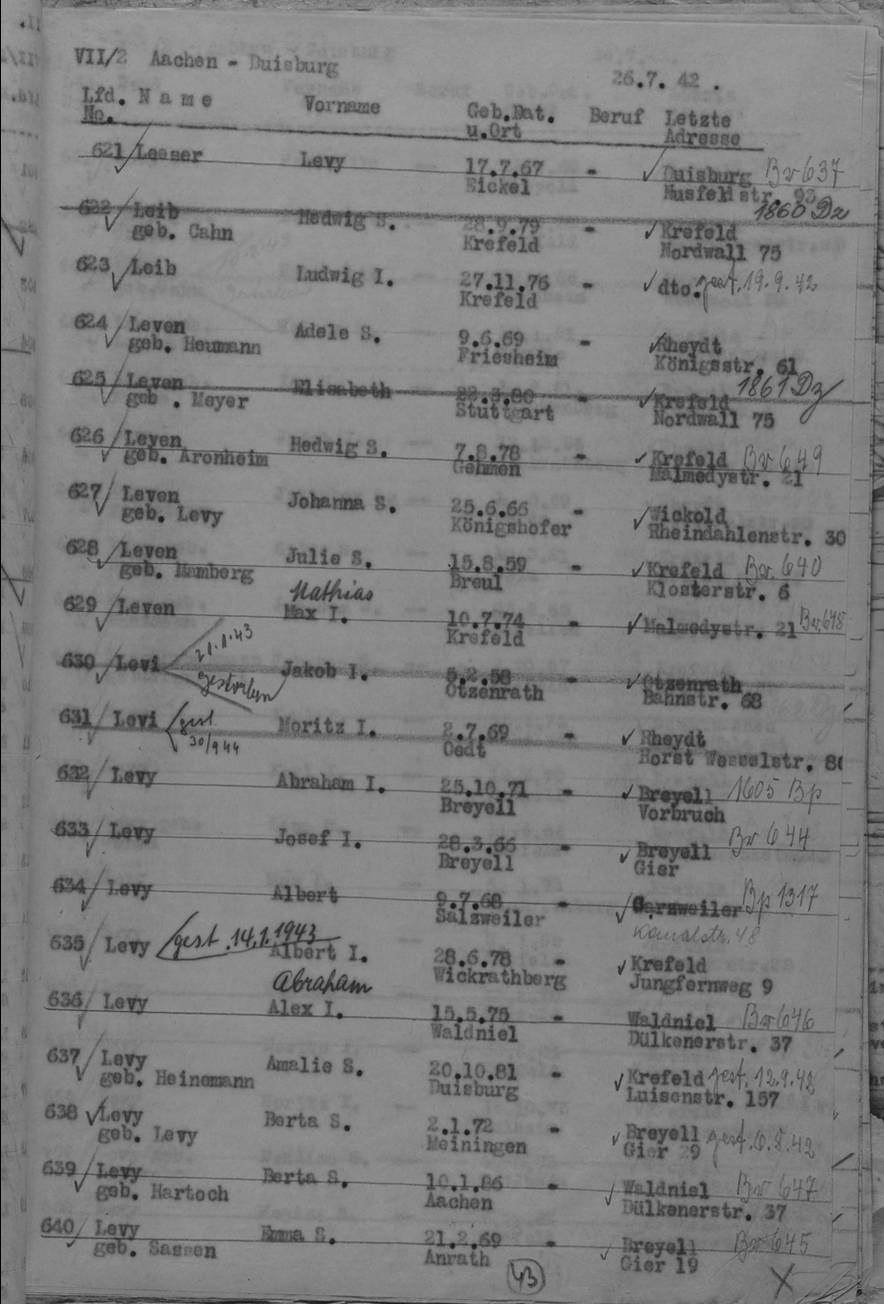 VII/2 Aachen - Duisburg 26.7. 42 .
Lfd. Name Vorname Geb.Dat. Beruf Letzte
No. u.Ort Adresse
621 Leaser Levy 17.7.67 - Duisburg Bv 637
Eickel Musfeldstr. 93
1860 Dz
622 Leib Hedwig S. 28.9.79 - Krefeld
geb. Cahn Krefeld Nordwall 75
623 Leib Ludwig I. 27.11.76 - dto. gest. 19.9.42
Krefeld
624 Leven Adele S. 9.6.69 - Rheydt
geb. Heumann Friesheim Königsstr. 61
1861 Dz
625 Leven Elisabeth - Krefeld
geb . Meyer Stuttgart Nordwall 75
626 Leven Hedwig S. 7.8.78 - Krefeld Bv 649
geb. Aronheim Gehmen Malmedystr. 21
627 Leven Johanna S. 25.6.66 - Wickold
geb. Levy Königshofer Rheindahlenstr. 30
628 Leven Julie S. 15.8.59 - Krefeld Bv 640
geb. Mamberg Breul Klosterstr. 6
Mathias
629 Leven Max I. 10.7.74 - Malmedystr. 21 Bv 648
Krefeld
21.1.43
630 Levi Jakob I. 5.2.58 - Otzenrath
gestorben Otzenrath Bahnstr. 68
631 Levi gest Moritz I. 2.7.69 - Rheydt
30/9 44 Oedt Horst Wesselstr.
632 Levy Abraham I. 25.10.71 - Breyell 1605 Bp
Breyell Vorbruch
633 Levy Josef I. 28.3.66 - Breyell Bv 644
Breyell Gier
634 Levy Albert 9.7.68 - Garzweiler Bp 1317
Salzweiler Kanalstr. 48
635 Levy gest. 14.1.1943 Albert I. 28.6.78 - Krefeld
Wickrathberg Jungfernweg 9
Abraham
636 Levy Alex I. 15.5.75 - Waldniel Bv 646
Waldniel Dülkenerstr. 37
637 Levy Amalie S. 20.10.81 - Krefeld gest. 12.9.42
geb. Heinemann Duisburg Luisenstr. 157
638 Levy Berta S. 2.1.72 - Breyell gest. 6.8.42
geb. Levy Meiningen Gier 29
639 Levy Berta S. 10.1.86 - Waldniel Bv 647
geb. Hartoch Aachen Dülkenerstr. 37
640 Levy Emma S. 21.2.69 - Breyell Bv 645
geb. Sassen Anrath Gier 19
43 X